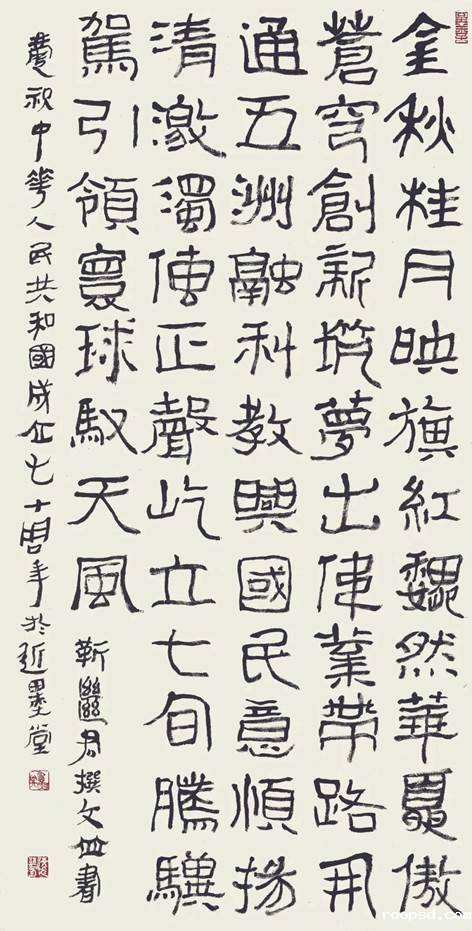 金秋桂月映旗紅巍然華夏傲
蒼穹創新筑夢出偉業帶路开
通五洲融科教興國民意順揚
清激濁使正聲屹立七旬騰驥
駕引領寰球馭天風
靳繼君撰文並書
慶祝中華人民共和國成立七十周年於近墨堂
roopsd.com